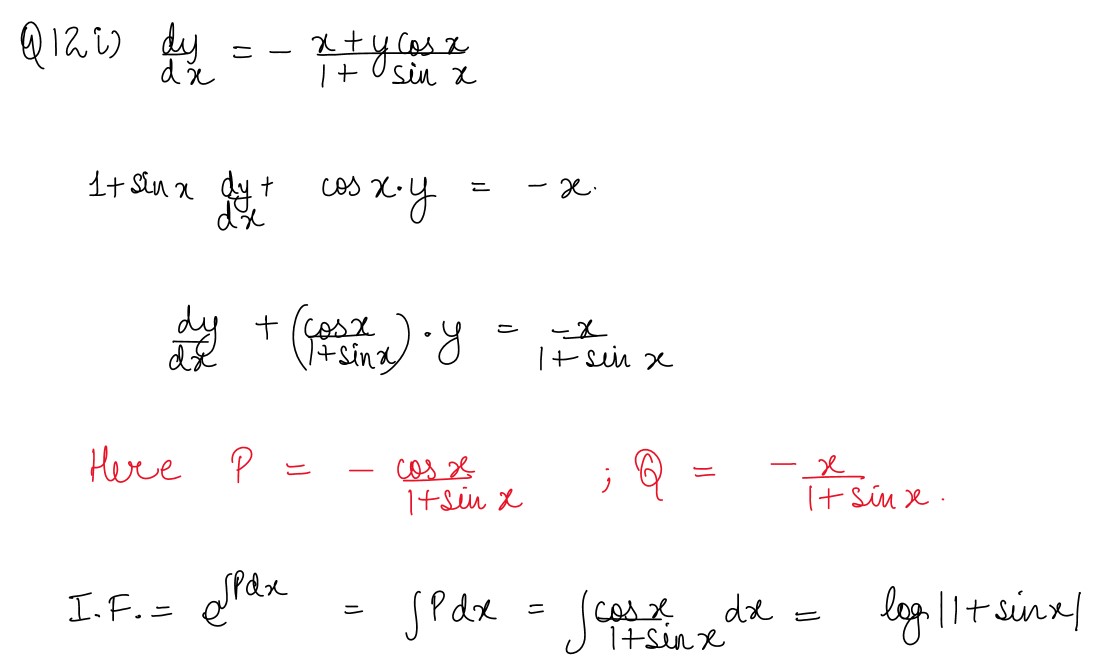 Q12 i) dy/dx = - (x + y cos x)/(1 + sin x)
1 + sin x dy/dx + cos x · y = - x.
dy/dx + (cos x/(1 + sin x)) · y = -x/(1 + sin x)
Here P = - cos x/(1 + sin x) ; Q = - x/(1 + sin x).
I.F. = e^∫Pdx = ∫Pdx = ∫cos x/(1 + sin x) dx = log|1 + sin x|